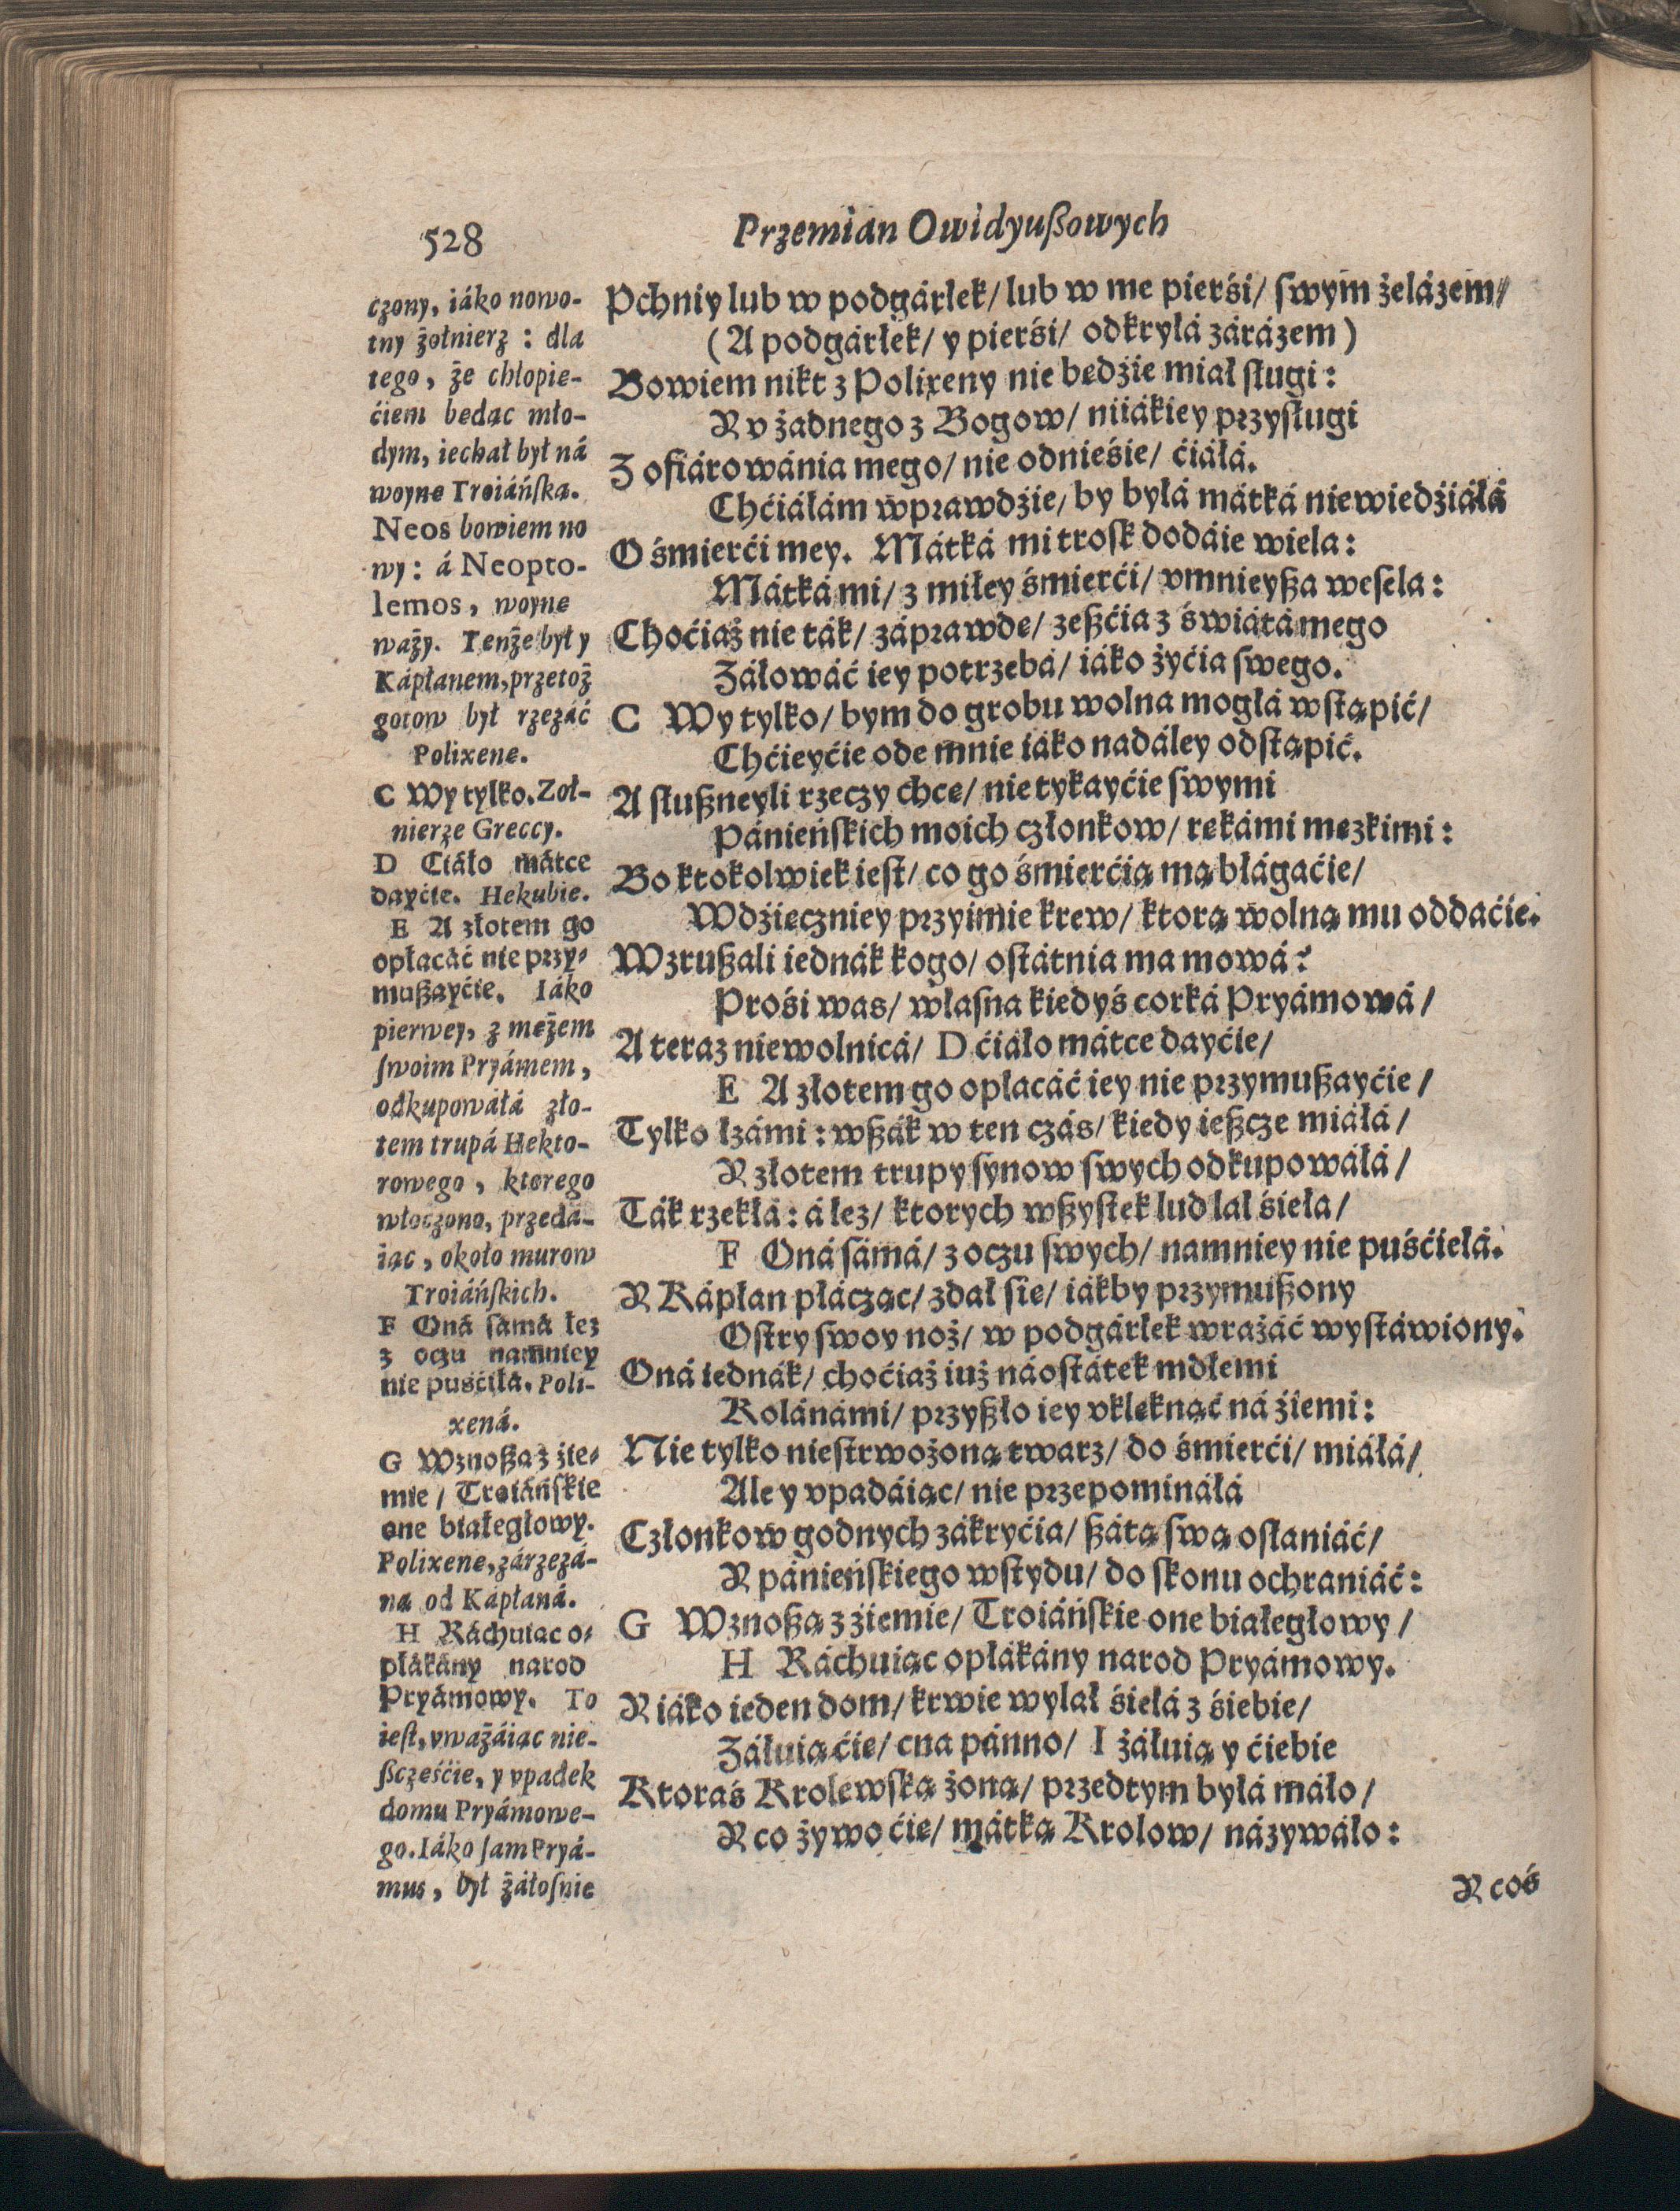 528
Przemian Owidyußowych
czony, iáko nowo-
tny żołnierz : dla
tego, że chłopie-
ćiem bedąc mło-
dym, iechał był ná
woyne Troiáńſką.
Neos bowiem no
wy: á Neopto-
lemos, woyne
waży. Tenże był y
Kápłanem, przetoż
gotow był rzezáć
Polixene.
C Wy tylko. Zoł-
nierze Greccy.
D Ciáło mátce
dayćie. Hekubie.
E A złotem go
opłacáć nie przy-
mußayćie. Iáko
pierwey, z meżem
ſwoim Pryámem,
odkupowáłá zło-
tem trupá Hekto-
rowego, ktorego
włoczono, przedá-
iąc, około murow
Troiáńſkich.
F Oná sámá łez
z oczu namniey
nie puśćiłá. Poli-
xená.
G Wznoßą z żie-
mie / Troiáńſkie
one białegłowy.
Polixene, zárzezá-
ną od Kápłaná.
H Ráchuiąc o-
płákány narod
Pryámowy. To
ieſt, vważáiąc nie-
ßcześćie, y vpadek
domu Pryámowe-
go. Iáko ſam Pryá-
mus, był żáłoſnie
Pchniy lub w podgárłek/ lub w me pierśi/ ſwym żelázem/
(A podgárłek/ y pierśi/ odkryłá zárázem)
Bowiem nikt z Polixeny nie bedżie miał ſługi:
Y v żadnego z Bogow/ niiákiey przyſługi
Z ofiárowánia mego/ nie odnieśie/ ćiáłá.
Chćiáłám wprawdżie/ by byłá mátká niewiedżiáłá
O śmierći mey. Mátká mi troſk dodáie wiela:
Mátká mi/ z miłey śmierći/ vmnieyßa weſela:
Choćiaż nie ták/ záprawde/ zeßćia z świátá mego
Záłowáć iey potrzebá/ iáko żyćia ſwego.
C Wy tylko/ bym do grobu wolna mogłá wſtąpić/
Chćieyćie ode mnie iáko nadáley odſtąpić.
A ſłußneyli rzeczy chce/ nie tykayćie ſwymi
Pánieńſkich moich członkow/ rękámi mezkimi:
Bo ktokolwiek ieſt/ co go śmierćią mą błágaćie/
Wdżięczniey przyimie krew/ ktorą wolną mu oddaćie.
Wzrußali iednák kogo/ oſtátnia ma mowá:
Prośi was/ właſna kiedyś corká Pryámowá/
A teraz niewolnicá/ D ćiáło mátce dayćie/
E A złotem go opłacáć iey nie przymußayćie/
Tylko łzámi: wßák w ten czás/ kiedy ießcze miáłá/
Y złotem trupy ſynow ſwych odkupowáłá/
Ták rzekłá: á łez/ ktorych wßyſtek lud lał śiełá/
F Oná ſámá/ z oczu ſwych/ namniey nie puśćiełá.
Y Kápłan płácząc/ zdał ſie/ iákby przymußony
Oſtry ſwoy noż/ w podgárłek wrażáć wyſtáwiony.
Oná iednák/ choćiaż iuż náoſtátek mdłemi
Kolánámi/ przyßło iey vkleknąć ná żiemi:
Nie tylko nieſtrwożoną twarz/ do śmierći/ miáłá/
Ale y vpadáiąc/ nie przepomináłá
Członkow godnych zákryćia/ ßátą ſwą osłaniáć/
Y pánieńſkiego wſtydu/ do ſkonu ochraniáć:
G Wznoßą z żiemie/ Troiáńſkie one białegłowy/
H Ráchuiąc opłákány narod Pryámowy.
Y iáko ieden dom/ krwie wylał śiełá z śiebie/
Záłuią ćie/ cna pánno/ I żáłuią y ćiebie
Ktoraś Krolewſką żoną/ przedtym byłá máło/
Y co żywo ćie/ mátką Krolow/ názywáło:
Y coś